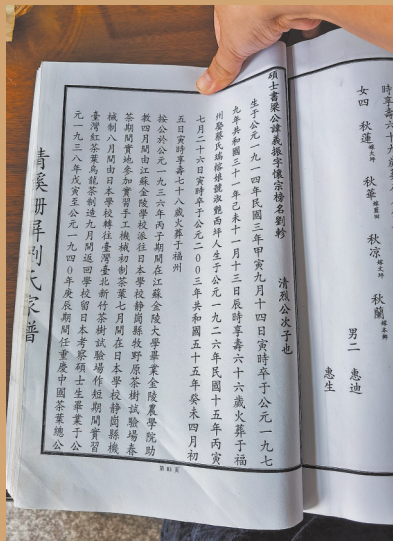 時享壽六十九
女四 秋蓮 秋華 秋凉 秋蘭
男二 惠迪
惠生
碩士書梁公諱義振字懷宗榜名劉軫 清烈公次子也
生于公元一九一四年民國三年甲寅九月十四日寅時卒于公元一九七
九年共和國三十一年己未十一月十三日辰時享壽六十六歲火葬于福
州娶蔡氏瑞榕娘號淑艷西坪人生于公元一九二六年民國十五年丙寅
七月二十六日寅時卒于公元二00三年共和國五十五年癸未四月初
五日寅時享壽七十八歲火葬于福州
按公於公元一九三六年丙子期間在江蘇金陵大學畢業金陵農學院助
教四月間由江蘇金陵學校派往日本學校靜崗縣牧野原茶樹試驗場春
茶期間實地參加實習手工機械初制茶七月間在日本學校靜崗縣機
械制八月間由日本學校轉往臺灣臺北新竹茶樹試驗場作短期間實習
臺灣紅茶葉烏龍茶制造九月間返回學校留日本考察碩士生畢業于公
元一九三八年戊寅至公元一九四0年庚辰期間任重慶中國茶葉總公
清溪珊屏劉氏家譜